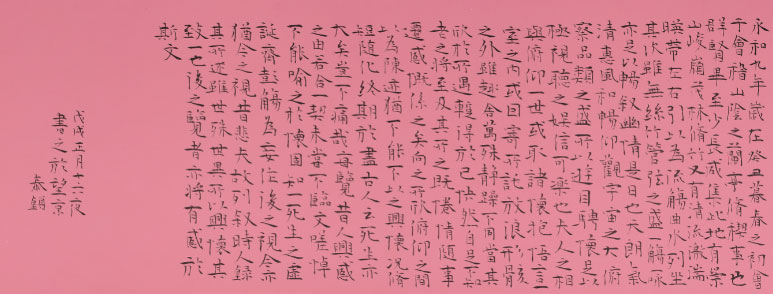 永和九年歲在癸丑暮春之初會
于會稽山陰之蘭亭脩稧事也
群賢畢至少長咸集此地有崇
山峻嶺茂林脩竹又有清流激湍
暎帶左右引以為流觴曲水列坐
其次雖無絲竹管弦之盛一觴一詠
亦足以暢叙幽情是日也天朗氣
清惠風和暢仰觀宇宙之大俯
察品類之盛所以遊目騁懷足以
極視聽之娛信可樂也夫人之相
與俯仰一世或取諸懷抱悟言一
室之內或因寄所託放浪形骸
之外雖趣舍萬殊靜躁不同當其
欣於所遇暫得於己快然自足不知
老之將至及其所之既倦情隨事
遷感慨係之矣向之所欣俯仰之間
以為陳迹猶不能不以之興懷況脩
短隨化終期於盡古人云死生亦
大矣豈不痛哉每覽昔人興感
之由若合一契未嘗不臨文嗟悼
不能喻之於懷固知一死生之虛
誕齊彭殤為妄作後之視今亦
猶今之視昔悲夫故列叙時人錄
其所述雖世殊世異所以興懷其
致一也後之覽者亦將有感於
斯文
戊戌正月十六夜
書之於望京